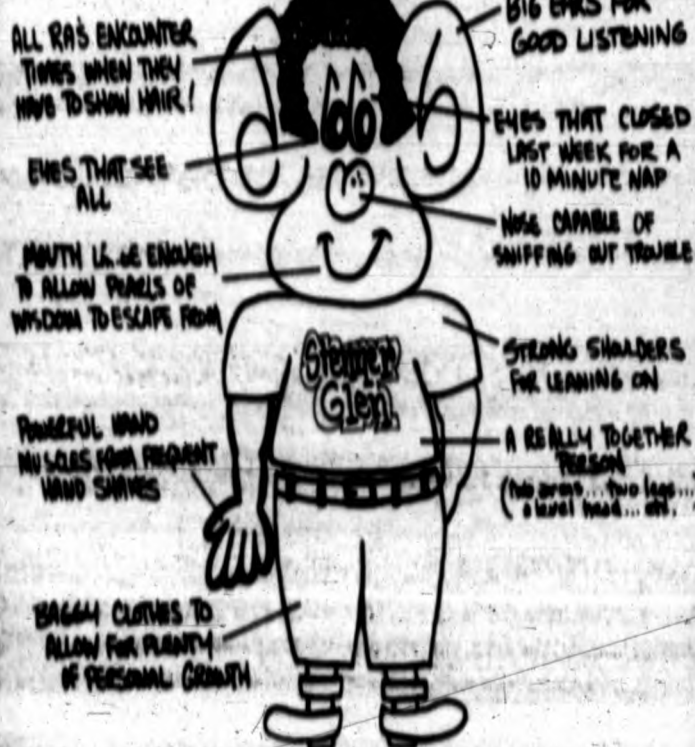 ALL RA'S ENCOUNTER
TIMES WHEN THEY
HAVE TO SHOW HAIR!
EYES THAT SEE
ALL
MOUTH LARGE ENOUGH
TO ALLOW PEARLS OF
WISDOM TO ESCAPE FROM
POWERFUL HAND
MUSCLES FROM FREQUENT
HAND SHAKES
BAGGY CLOTHES TO
ALLOW FOR PLENTY
OF PERSONAL GROWTH
BIG EARS FOR
GOOD LISTENING
EYES THAT CLOSED
LAST WEEK FOR A
10 MINUTE NAP
NOSE CAPABLE OF
SNIFFING OUT TROUBLE
STRONG SHOULDERS
FOR LEANING ON
A REALLY TOGETHER
PERSON
(two arms... two legs...
a level head... etc.
Stenner
Glen